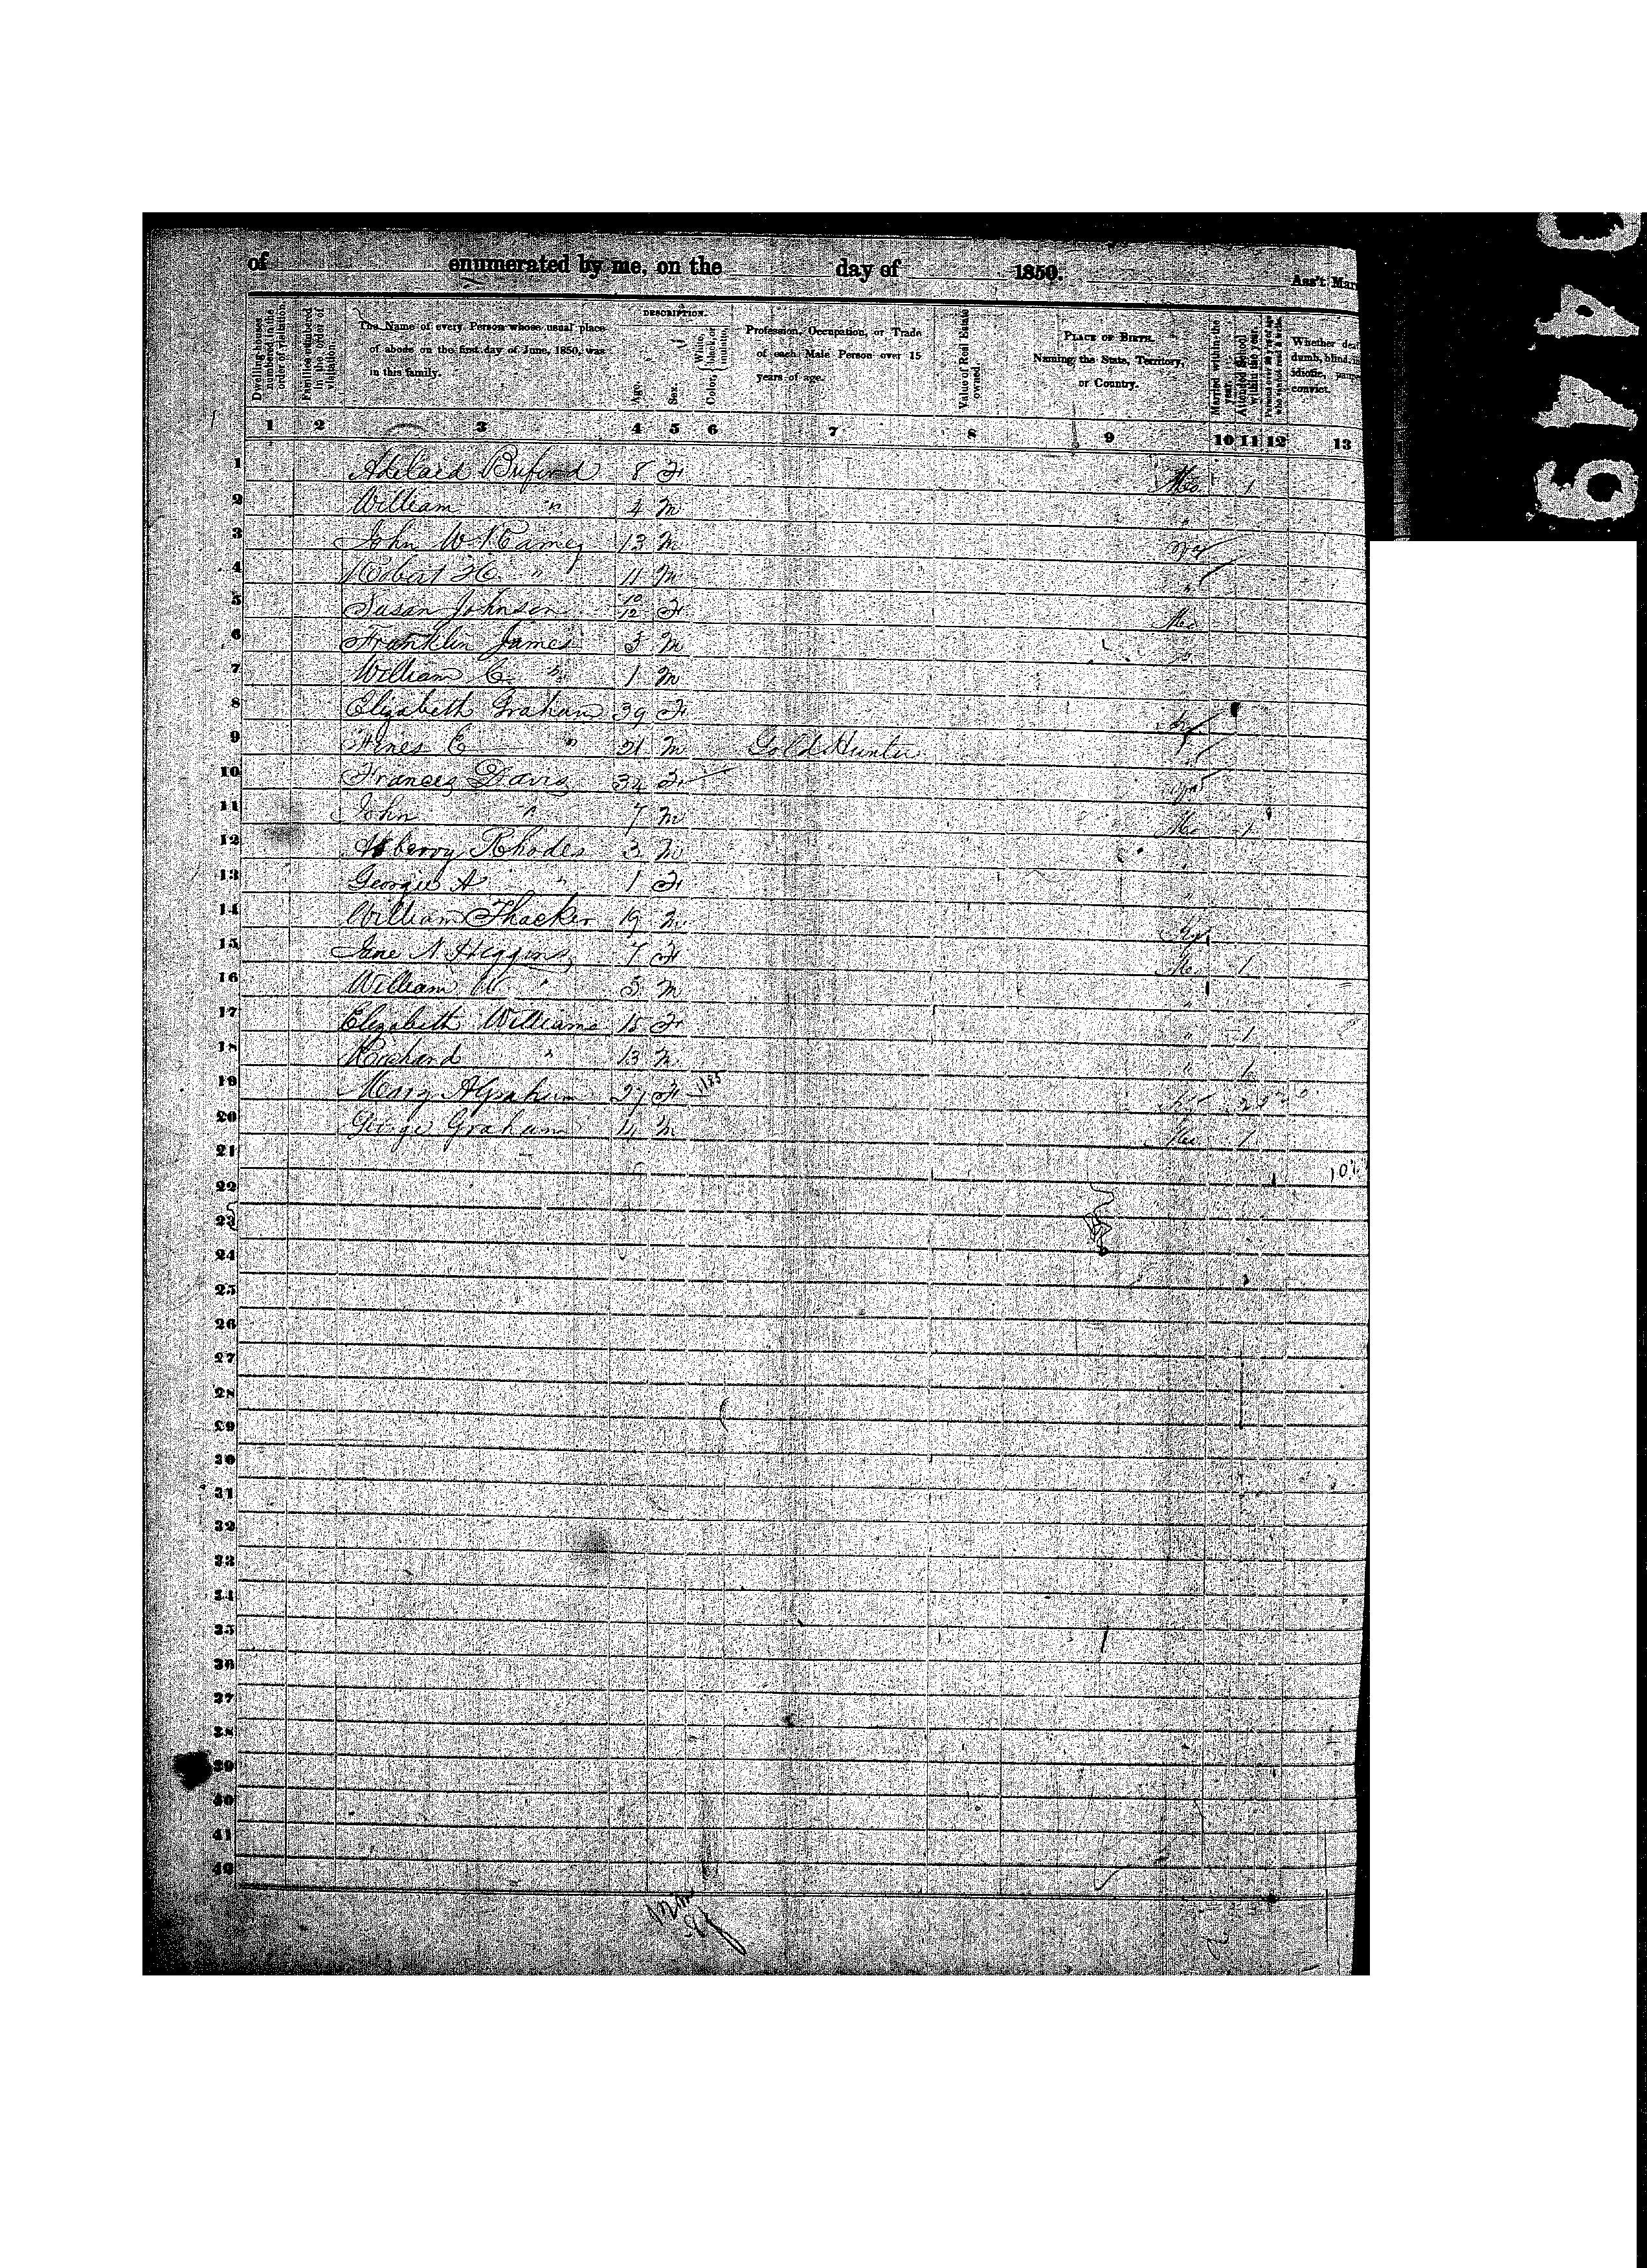 of enumerated by me, on the day of 1850. Ass't Mar
Dwelling-houses numbered in the order of visitation.
Families numbered in the order of visitation.
The Name of every Person whose usual place of abode on the first day of June, 1850, was in this family.
DESCRIPTION.
Age.
Sex.
Color, White, black, or mulatto.
Profession, Occupation, or Trade of each Male Person over 15 years of age.
Value of Real Estate owned.
PLACE OF BIRTH. Naming the State, Territory, or Country.
Married within the year.
Attended School within the year.
Whether dea dumb, blind, idiotic, convict.
1 2 3 4 5 6 7 8 9 10 11 12 13
1 Adelaid 8 F Mo 1
2 William " 4 M "
3 John W 13 M
4 Robert H " 11 M "
5 Susan Johnson 10/12 F Mo
6 Franklin James 3 M "
7 William C " 1 M
8 Elizabeth Graham 39 F Ky
9 E " 21 M Gold Hunter
10 Frances Davis 34 F
11 John " 7 M Mo 1
12 Asberry Rhodes 3 M "
13 Georgie A " 1 F "
14 William Thacker 19 M Ky
15 Jane N. Higgins 7 F Mo 1
16 William " 5 M "
17 Elizabeth Williams 15 F " 1
18 Richard " 13 M " 1
19 Mary 27 F
20 George Graham 4 M Mo 1
21
22
23
24
25
26
27
28
29
30
31
32
33
34
35
36
37
38
39
40
41
42